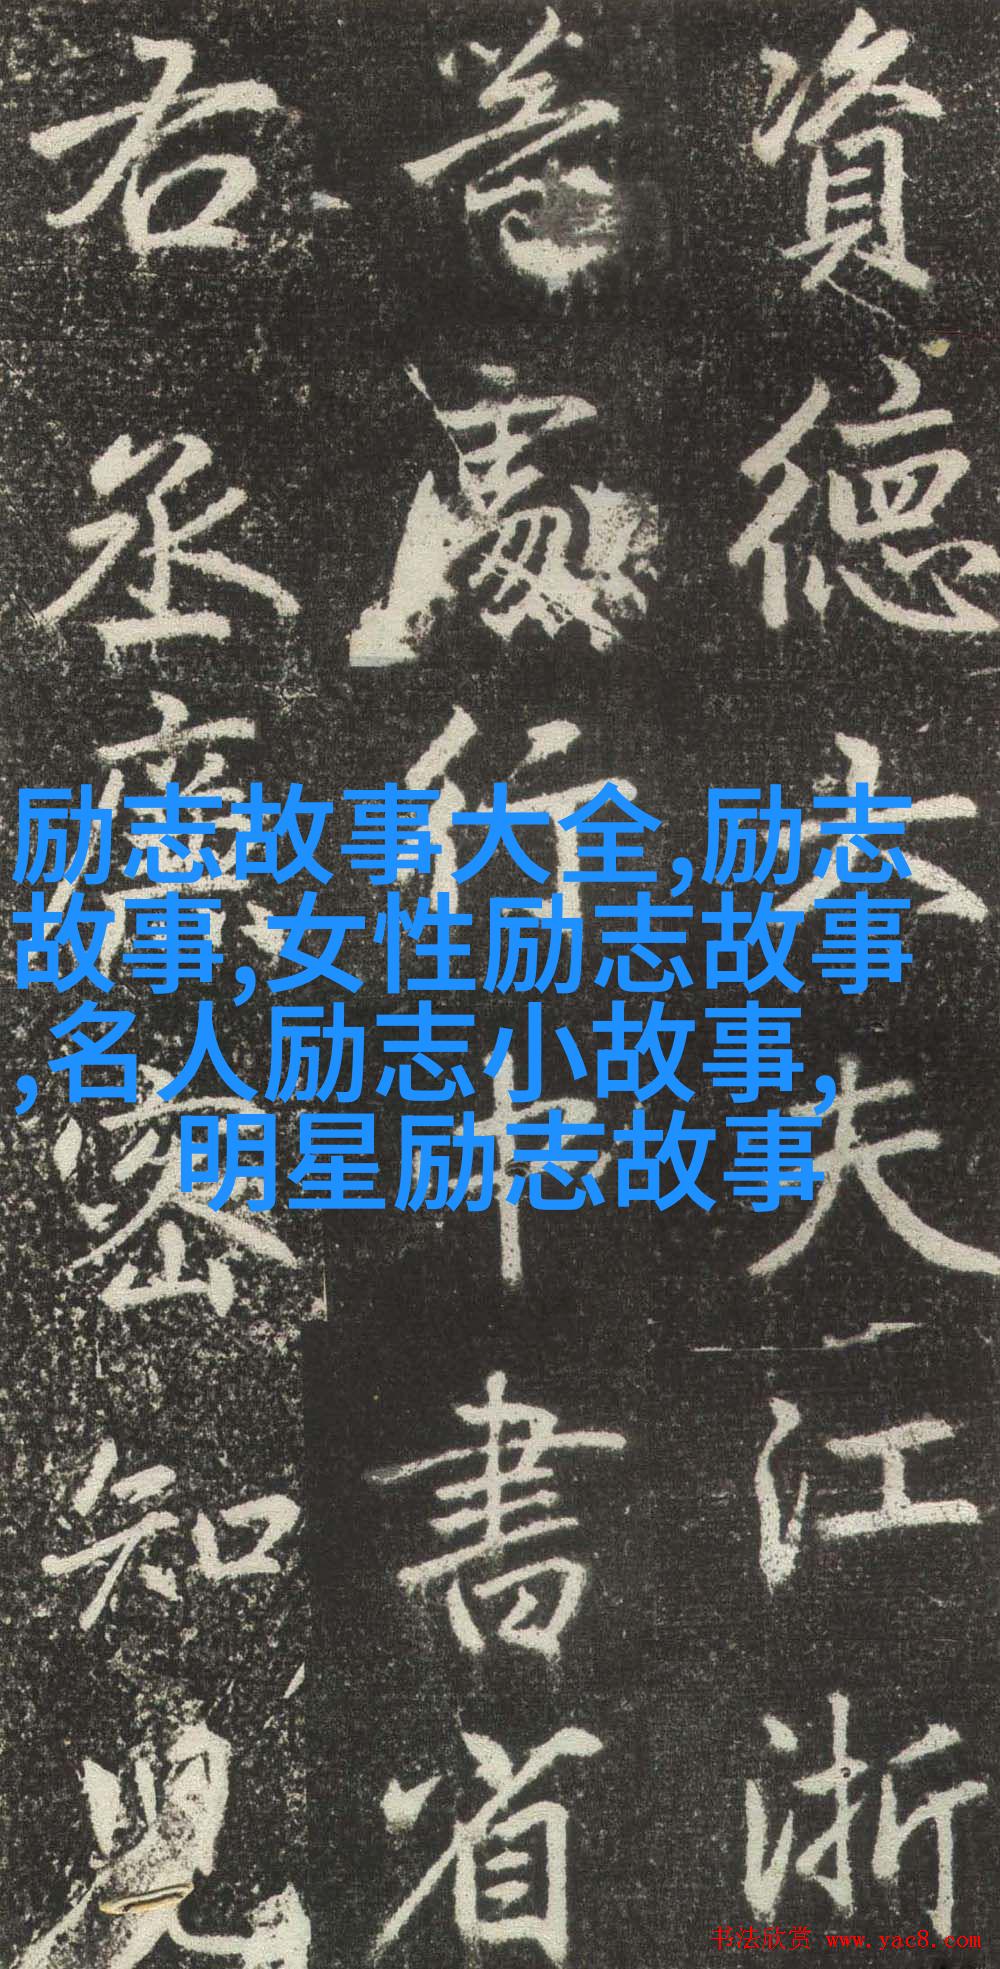 資德大夫江浙
等處行中書省
右丞廉密知兒
励志故事大全,励志
故事,女性励志故事
,名人励志小故事,
明星励志故事
书法欣赏 www.yac8.com